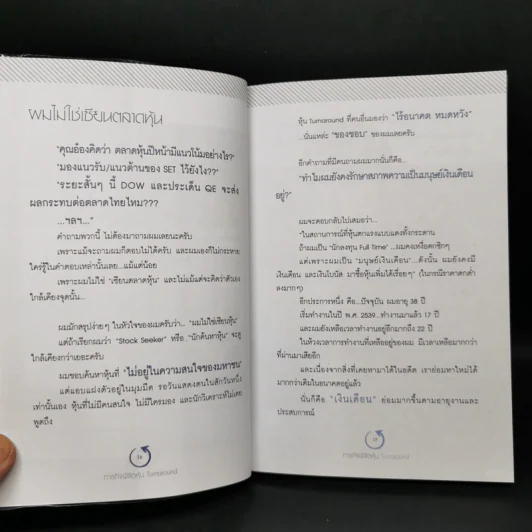 ผมไม่ใช่เซียนตลาดหุ้น
"คุณอ๋องคิดว่า ตลาดหุ้นปีหน้ามีแนวโน้มอย่างไร?"
"มองแนวรับ/แนวต้านของ SET ไว้ยังไง??"
"ระยะสั้นๆ นี้ DOW และประเด็น QE จะส่ง
ผลกระทบต่อตลาดไทยไหม???
...ฯลฯ..."
คำถามพวกนี้ ไม่ต้องมาถามผมเลยนะครับ
เพราะแม้จะถามผมก็ตอบไม่ได้ครับ และผมเองก็ไม่กระหาย
ใคร่รู้ในคำตอบเหล่านั้นเลย...แม้แต่น้อย
เพราะผมไม่ใช่ "เซียนตลาดหุ้น" และไม่แม้แต่จะคิดว่าตัวเอง
ใกล้เคียงจุดนั้น...
ผมมักสรุปง่ายๆ ในหัวใจของผมครับว่า... "ผมไม่ใช่เซียนหุ้น"
แต่ถ้าเรียกผมว่า "Stock Seeker" หรือ "นักค้นหาหุ้น" จะดู
ใกล้เคียงกว่าเยอะครับ
ผมชอบค้นหาหุ้นที่ "ไม่อยู่ในความสนใจของมหาชน"
แต่แอบแฝงตัวอยู่ในมุมมืด รอวันแสดงตนในสักวันหนึ่ง
เท่านั้นเอง หุ้นที่ไม่มีคนสนใจ ไม่มีใครมอง และนักวิเคราะห์ไม่เคย
พูดถึง
16
ภารกิจพิชิตหุ้น Turnaround
หุ้น Turnaround ที่คนอื่นมองว่า "ไร้อนาคต หมดหวัง"
...นั่นแหล่ะ "ของชอบ" ของผมเลยครับ
อีกคำถามที่มีคนถามผมมากนั่นก็คือ...
"ทำไมผมยังคงรักษาสภาพความเป็นมนุษย์เงินเดือน
อยู่?"
ผมจะตอบกลับไปเสมอว่า...
"ในสถานการณ์ที่หุ้นตกแรงแบบแดงทั้งกระดาน
ถ้าผมเป็น "นักลงทุน Full Time" ...ผมคงเหงื่อตกซิกๆ
แต่เพราะผมเป็น "มนุษย์เงินเดือน"...ดังนั้น ผมยังคงมี
เงินเดือน และเงินโบนัส มาซื้อหุ้นเพิ่มได้เรื่อยๆ" (ในกรณีราคาตกต่ำ
ลงมากๆ)
อีกประการหนึ่ง คือ...ปัจจุบัน ผมอายุ 38 ปี
เริ่มทำงานในปี พ.ศ. 2539...ทำงานมาแล้ว 17 ปี
และผมยังเหลือเวลาทำงานอยู่อีกมากถึง 22 ปี
ในห้วงเวลาการทำงานที่เหลืออยู่ของผม มีเวลาเหลือมากกว่า
ที่ผ่านมาเสียอีก
และเนื่องจากสิ่งที่เคยทำมาได้ในอดีต เราย่อมทำใหม่ได้
มากกว่าเดิมในอนาคตอยู่แล้ว
นั่นก็คือ "เงินเดือน" ย่อมมากขึ้นตามอายุงานและ
ประสบการณ์
17
ภารกิจพิชิตหุ้น Turnaround